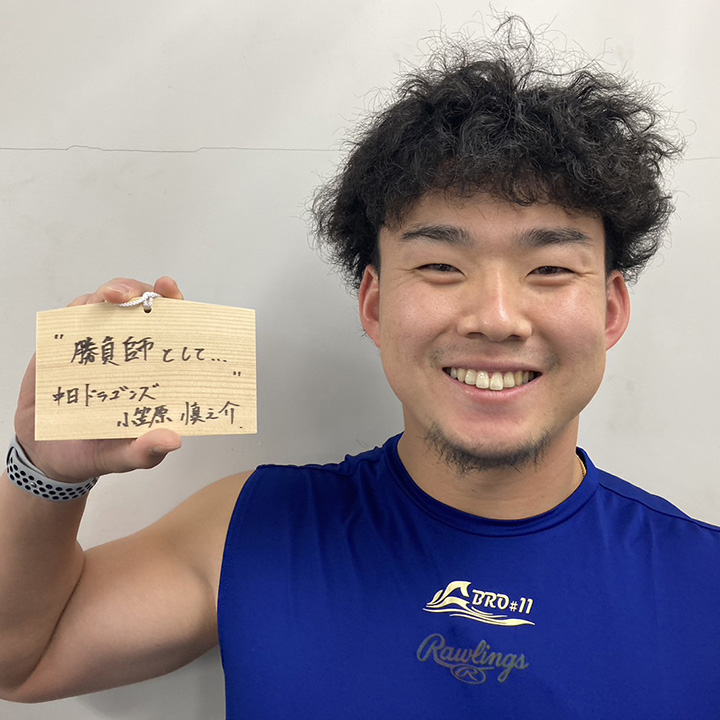 "勝負師として…"
中日ドラゴンズ
小笠原 慎之介
BRO#11
Rawlings
R